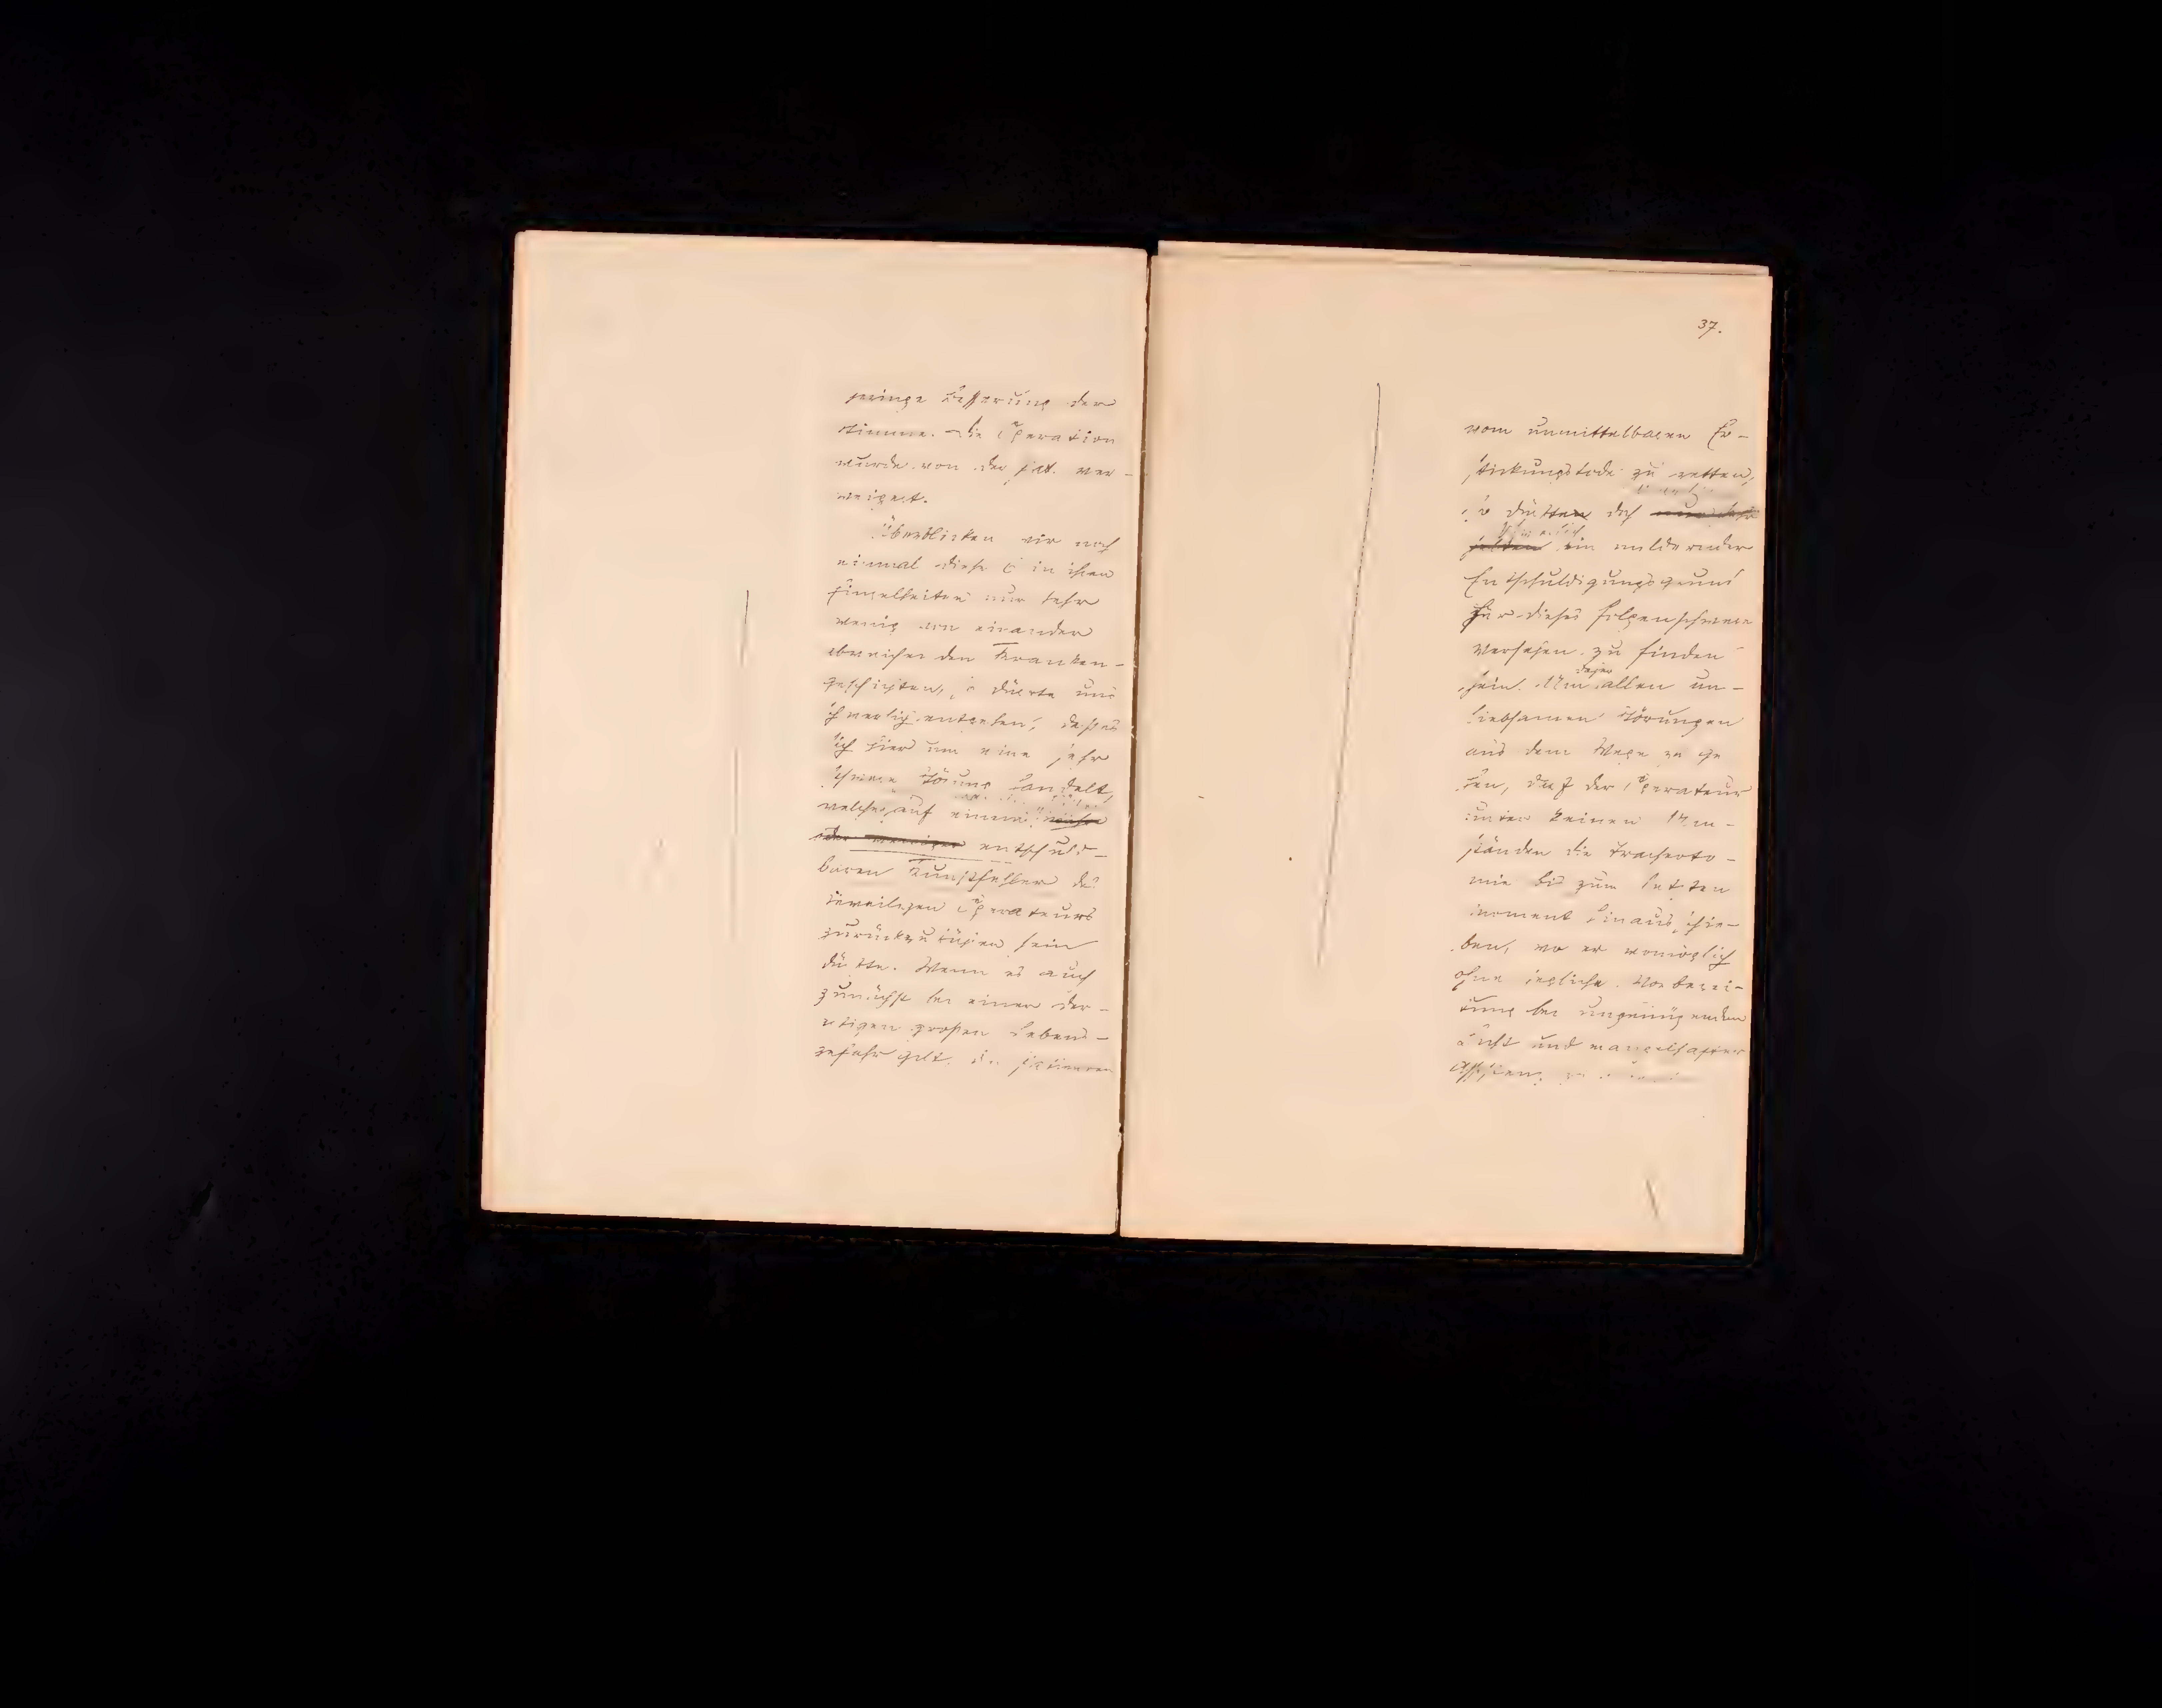 geringe Besserung der
Stimme. Die Operation
wurde von der pat. ver-
weigert.
Überblicken wir noch
einmal diese 6 in ihren
Einzelheiten nur sehr
wenig von einander
abweichenden Kranken-
geschichten, so dürfte uns
schwerlich entgehen, dass es
sich hier um eine sehr
schwere Störung handelt,
welche auf einen mehr
oder weniger entschuld-
baren Kunstfehler des
jeweiligen Operateurs
zurückzuführen sein
dürfte. Wenn es auch
zunächst bei einer der-
artigen grossen Lebens-
gefahr gilt, den patienten
37.
vom unmittelbaren Er-
stickungstode zu retten,
so dürfte doch
schwerlich
selten ein mildernder
Entschuldigungsgrund
für dieses folgenschwere
Versehen zu finden
daher
sein. Um allen un-
liebsamen Störungen
aus dem Wege zu ge
hen, darf der Operateur
unter keinen Um-
ständen die Tracheoto-
mie bis zum letzten
moment hinausschie-
ben, wo er womöglich
ohne jegliche Vorberei-
tung bei ungenügendem
Licht und mangelhafter
Assistenz